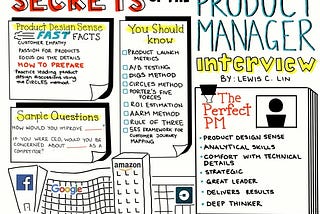 SECRETS OF THE
PRODUCT
MANAGER
interview
BY: LEWIS C. LIN
Product Design Sense
FAST FACTS
CUSTOMER EMPATHY
PASSION FOR PRODUCTS
FOCUS ON THE DETAILS
HOW TO PREPARE
Practice leading product
design discussions using
the CIRCLES Method
You Should
know
PRODUCT LAUNCH
METRICS
A/B TESTING
DIGS METHOD
CIRCLES METHOD
PORTER'S FIVE
FORCES
ROI ESTIMATION
AARM METHOD
RULE OF THREE
5ES FRAMEWORK FOR
CUSTOMER JOURNEY
MAPPING
Sample Questions
HOW WOULD YOU IMPROVE
IF YOU WERE CEO, WOULD YOU BE
CONCERNED ABOUT AS A
COMPETITOR?
The
Perfect
PM
PRODUCT DESIGN SENSE
ANALYTICAL SKILLS
COMFORT WITH TECHNICAL
DETAILS
STRATEGIC
GREAT LEADER
DELIVERS RESULTS
DEEP THINKER
f
Google
amazon